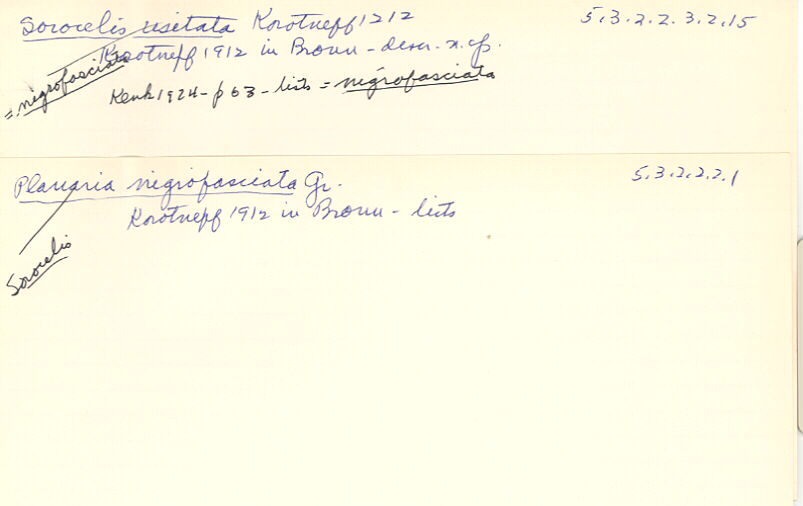 Sorocelis usitata Korotneff 1212 5.3.2.2.3.2.15
Korotneff 1912 in Bronn - descr. n. sp.
= nigrofasciata
Kenk 1924 - p 63 - lists = nigrofasciata
Planaria nigrofasciata Gr. 5.3.2.2.2.1
Korotneff 1912 in Bronn - lists
Sorocelis